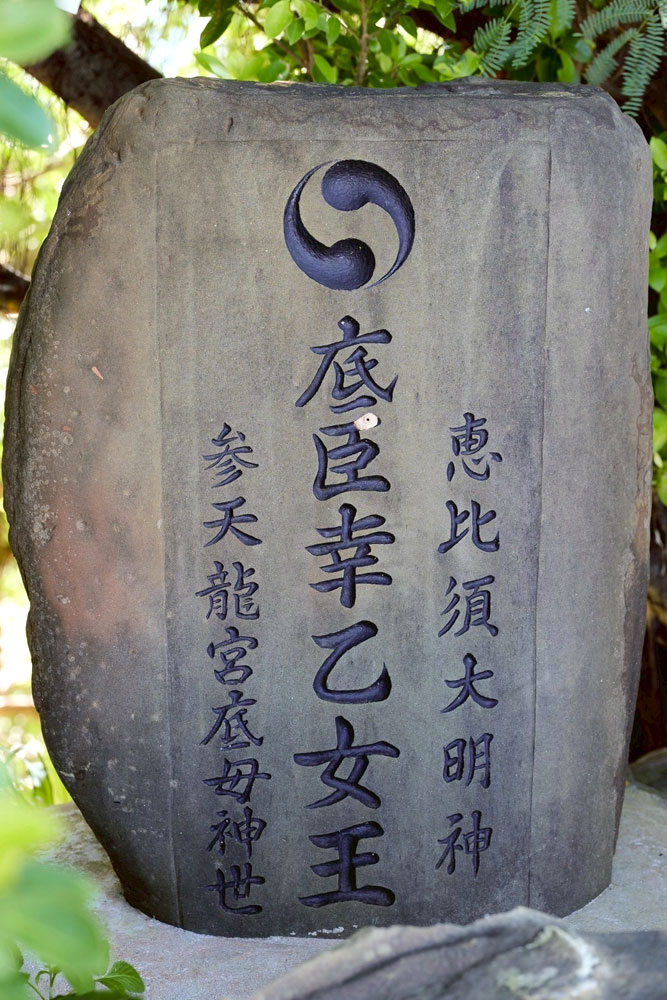 恵比須大明神
底臣幸乙女王
参天龍宮底母神世